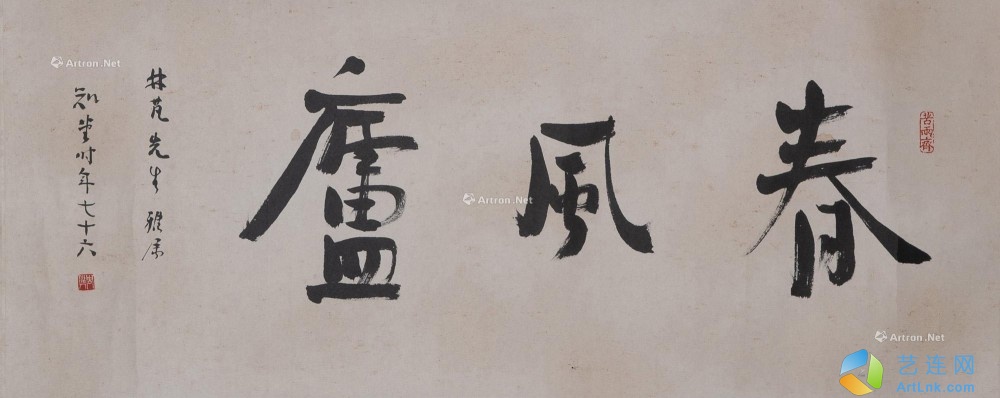 春風廬
林芃先生 雅属
知堂时年七十六
苦雨斋
Artron.Net
Artron.Net
Artron.Net
艺连网
ArtLnk.com